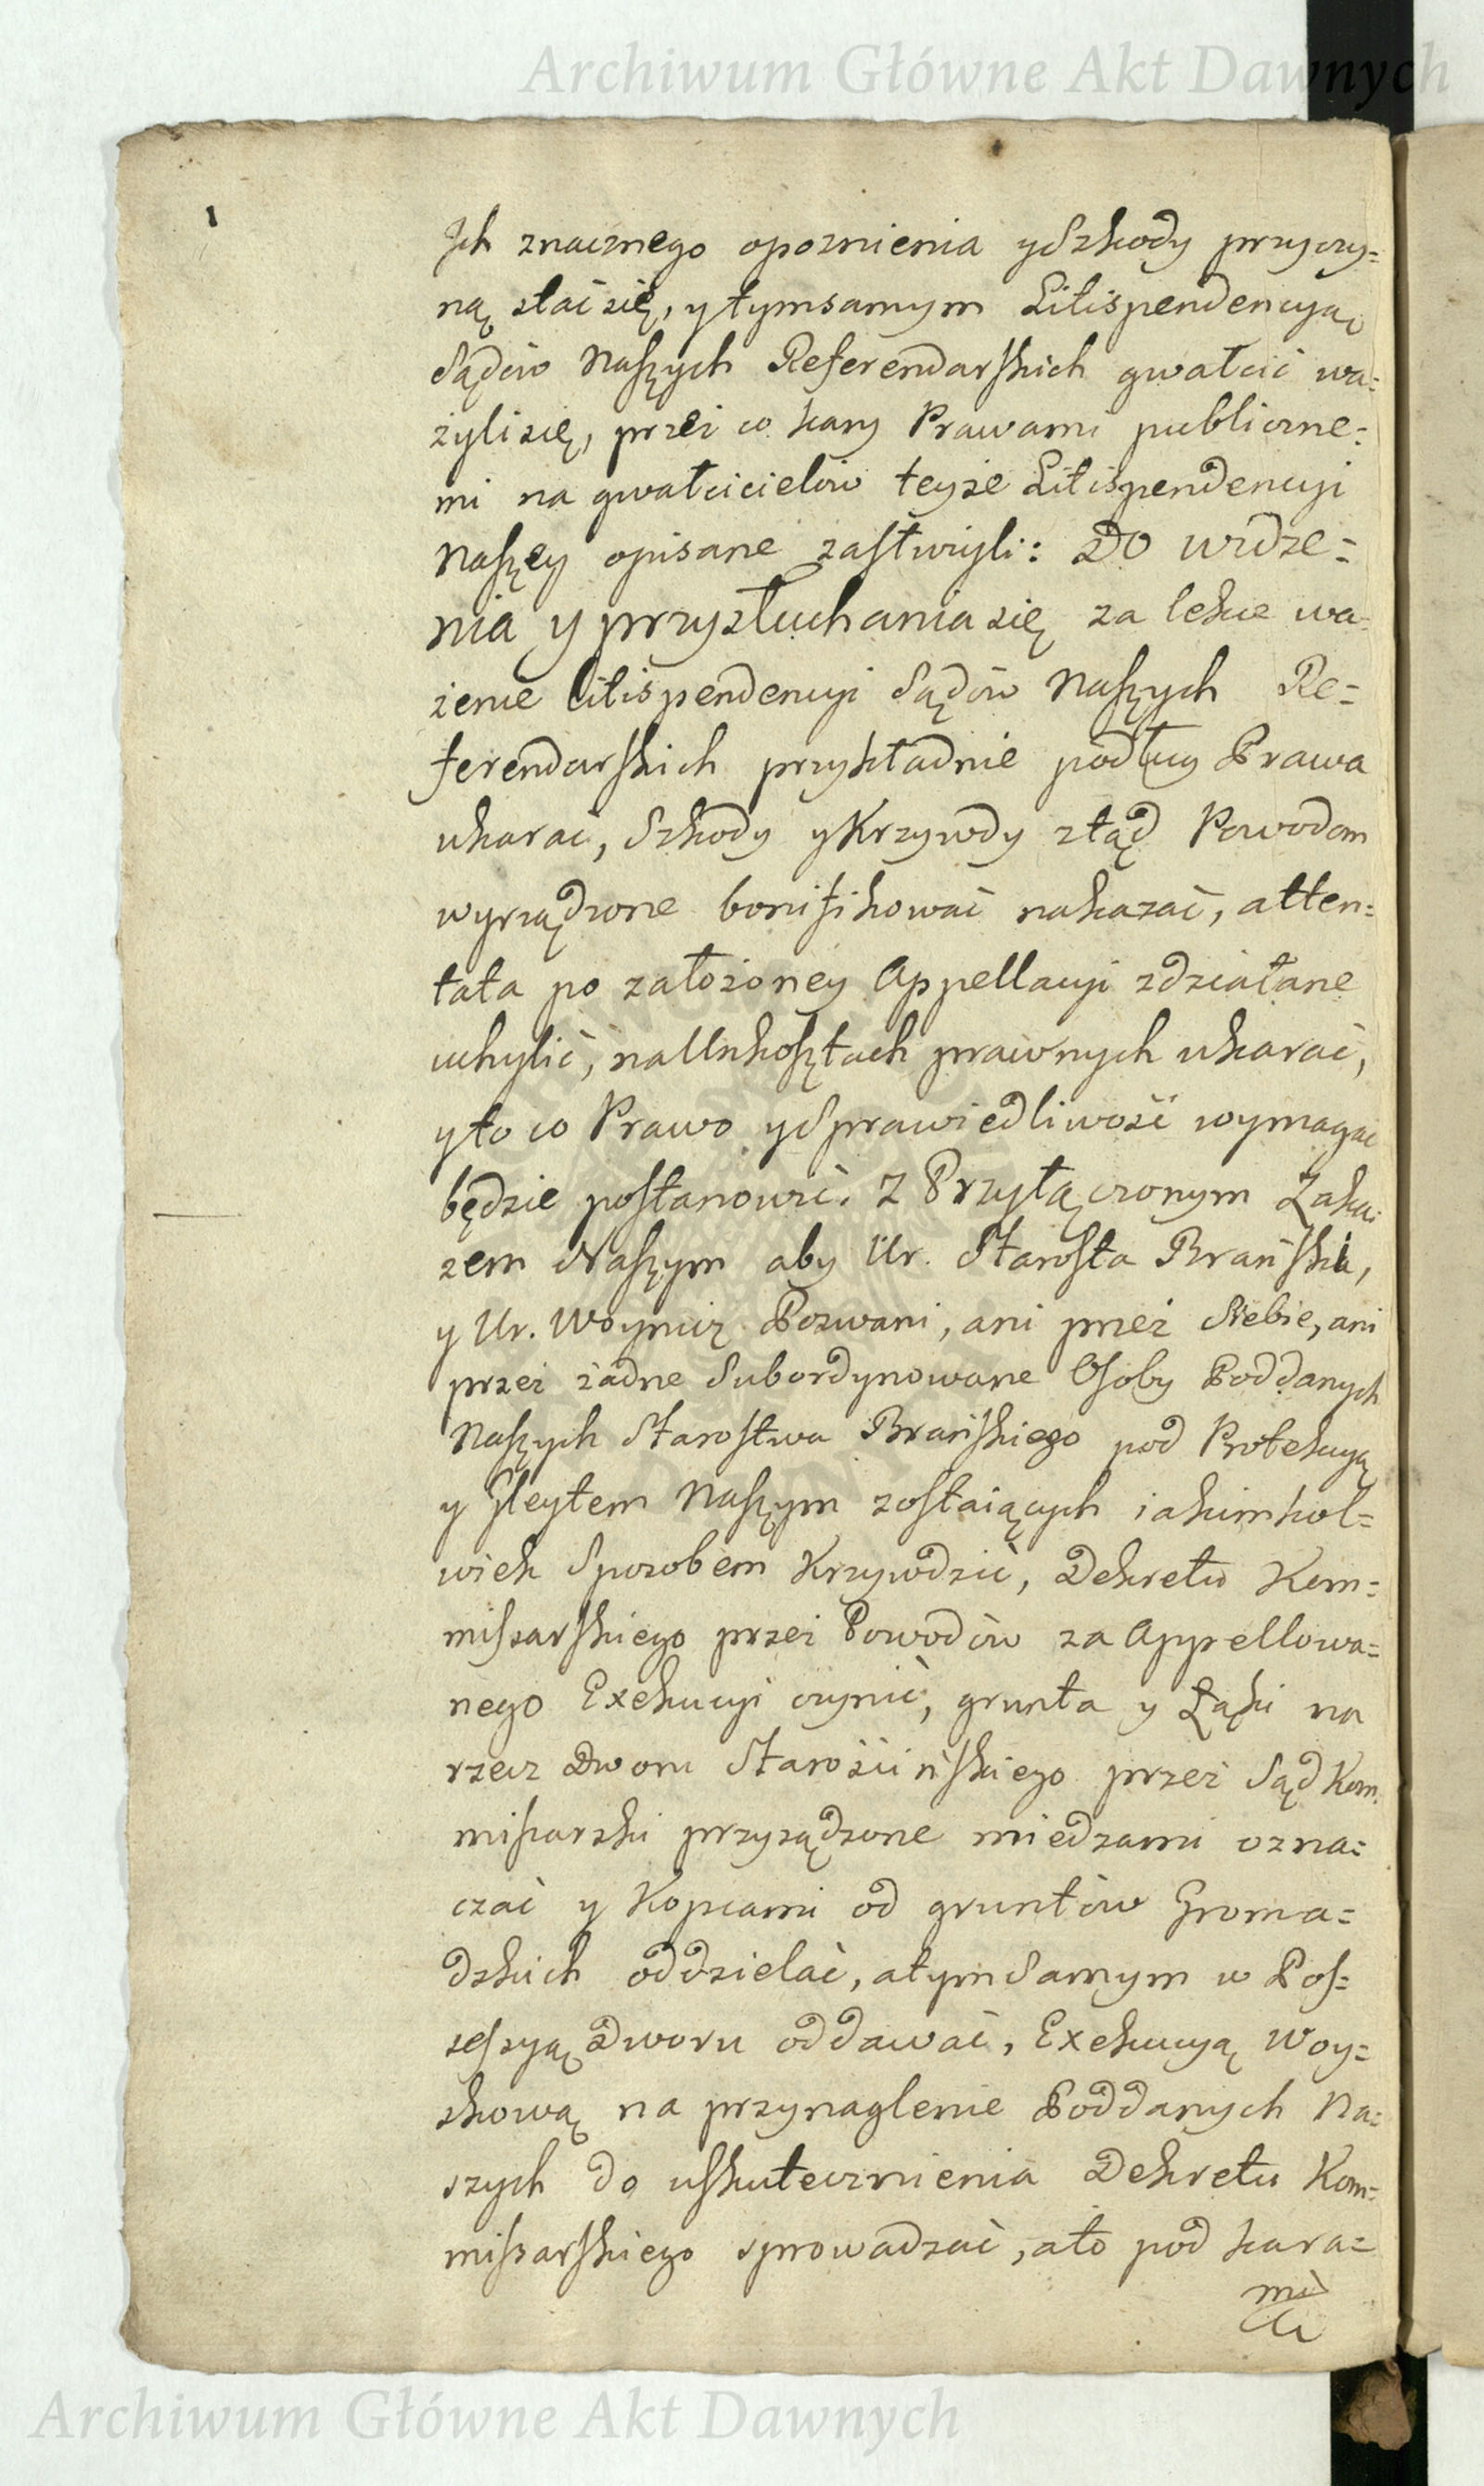 Archiwum Główne Akt Dawnych
Jch znacznego opoznienia y Szkody przyczy=
ną stać się, y tymsamym Litispendencyąc
Sądów Naszych Referendarskich gwałcić wa=
żyli się, przez co kary Prawami publiczne=
mi na gwałcicielów teyże Litispendencyi
Naszey opisane zasłużyli: Do widze=
nia y przysłuchania się za lekce wa=
żenie litispendencyi Sądów Naszych Re=
ferendarskich przykładnie podług Prawa
ukarać, Szkody y Krzywdy ztąd Powodom
wyrządzone bonifikować nakazać, atten=
tata po założoney Appellacyi zdziałane
uchylić, na Unkosztach prawnych ukarać,
y to co Prawo y Sprawiedliwość wymagać
będzie postanowić. Z Przyłączonym Zaka=
zem Naszym aby Ur. Starosta Brański,
y Ur. Woynicz Pozwani, ani przez Siebie, ani
przez żadne Subordynowane Osoby Poddanych
Naszych Starostwa Brańskiego pod Protekcyą
y Gleytem Naszym zostaiących iakimkol=
wiek Sposobem Krzywdzić, Dekretu Kom=
missarskiego przez Powodów za Appellowa=
nego Exekucyi czynić, grunta y Łąki na
rzecz Dworu Starościńskiego przez Sąd Kom=
missarski przysądzone miedzami ozna=
czać y Kopcami od gruntów Groma=
dzkich oddzielać, a tym Samym w Pos=
sessyą Dworu oddawać, Exekucyą Woy=
skową na przynaglenie Poddanych Na=
szych do uskutecznienia Dekretu Kom=
missarskiego sprowadzać, a to pod kara=
mi
Archiwum Główne Akt Dawnych